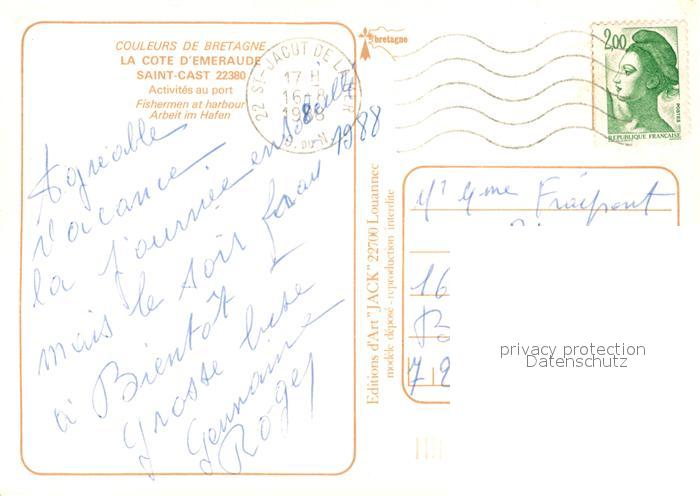 COULEURS DE BRETAGNE
LA COTE D'EMERAUDE
SAINT-CAST 22380
Activités au port
Fishermen at harbour
Arbeit im Hafen
bretagne
22 ST-JACUT DE LA MER
17 H
16-8
1988
C. DU N.
2,00
POSTES
REPUBLIQUE FRANÇAISE
1988
Agréable
vacance
la journée ensoleillé
mais le soir frais
à Bientôt
grosse bise
Germaine
Roger
Editions d'Art "JACK" 22700 Louannec
modèle déposé - reproduction interdite
Mr Mme Fraipont
16
B
72
privacy protection
Datenschutz